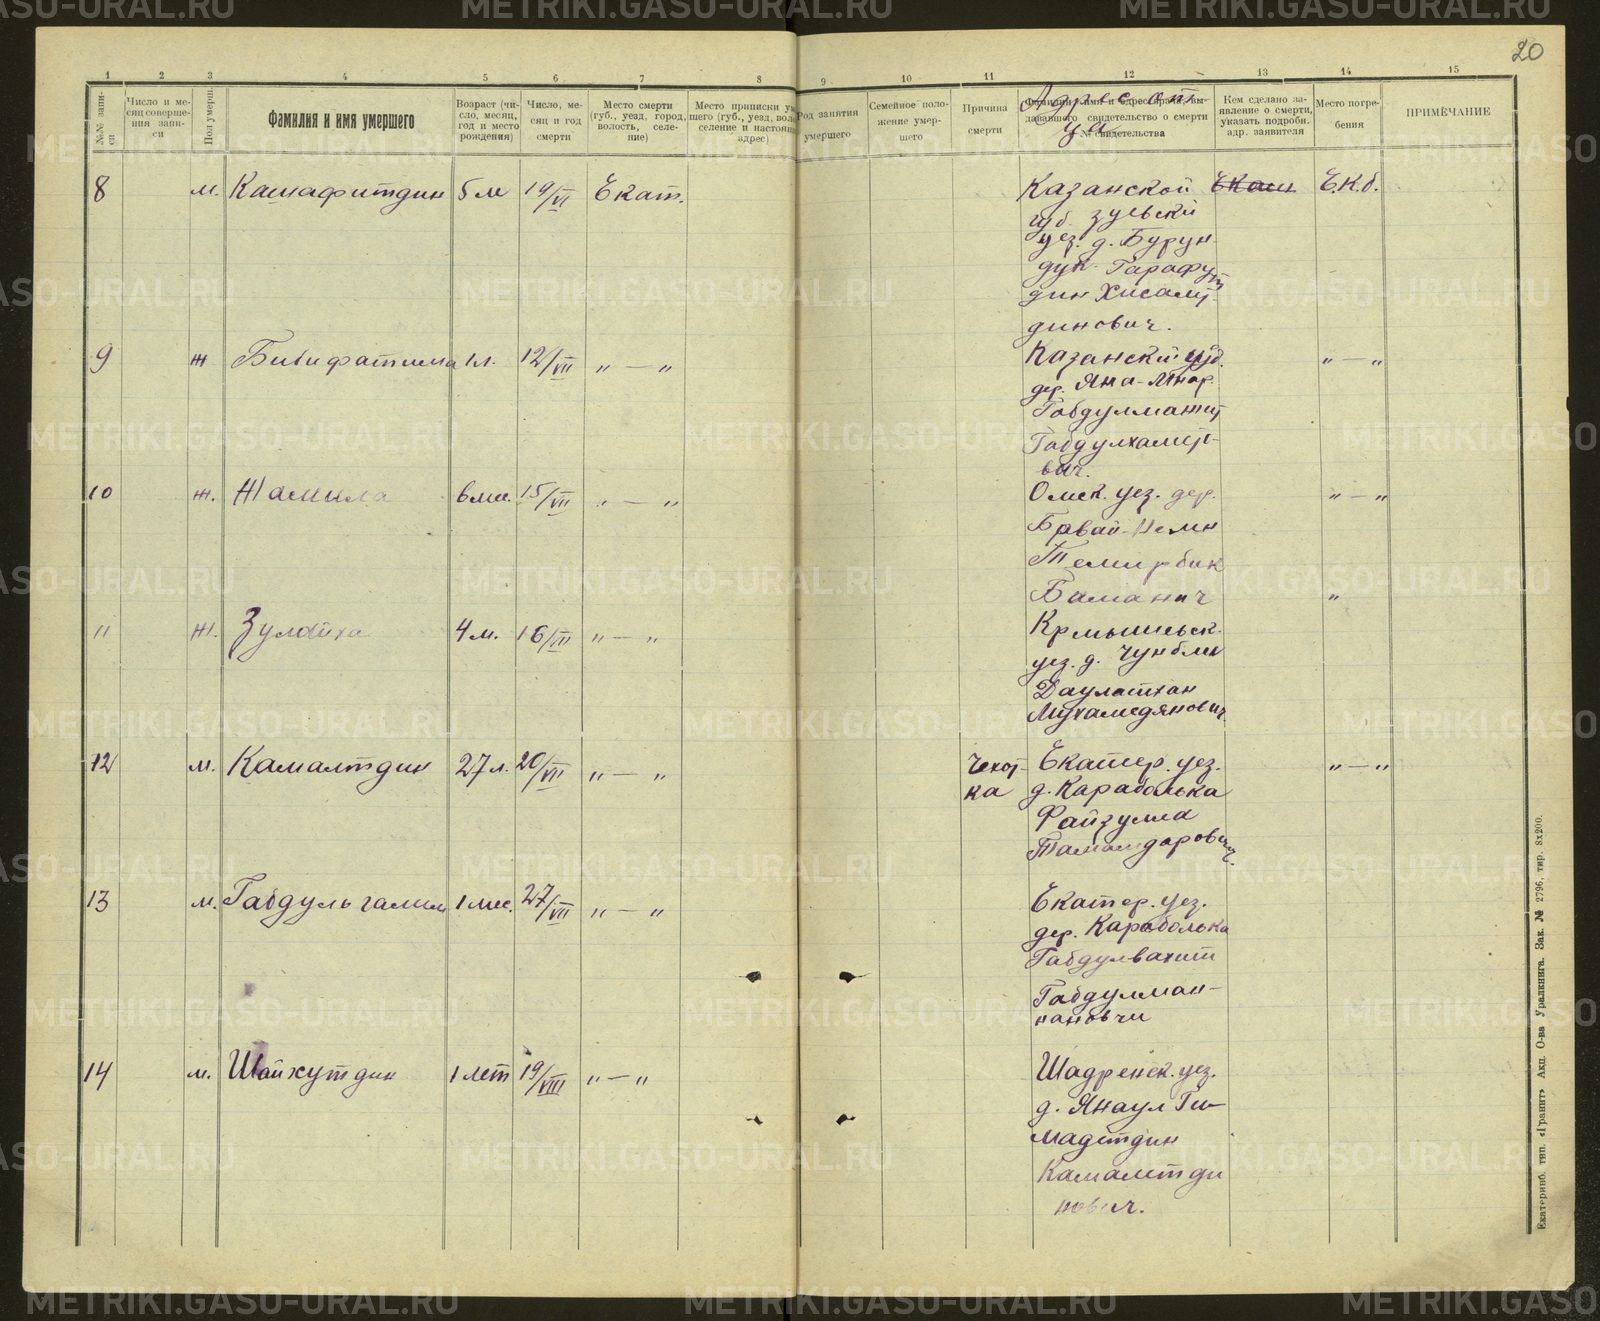 20
1 2 3 4 5 6 7 8 9 10 11 12 13 14 15
№№ записи
Число и месяц совершения записи
Пол умерш.
Фамилия и имя умершего
Возраст (число, месяц, год и место рождения)
Число, месяц и год смерти
Место смерти (губ., уезд, город, волость, селение)
Место приписки
Род занятия умершего
Семейное положение умершего
Причина смерти
Адрес отца
свидетельство о смерти
№ свидетельства
Кем сделано заявление о смерти, указать подробн. адр. заявителя
Место погребения
ПРИМЕЧАНИЕ
8 м. Камафитдин 5 м 19/VI Екат. Казанской Екат Е.К.б.
губ.
уез. д. Бурун-
дук Гарафут
дин Хисамут
динович.
9 ж Бибифатима 1 л. 12/VII „ — „ Казанский губ. „ — „
дер. Яна-
Габдулмажит
вич.
10 ж. Жамила 6 мес. 15/VII „ — „ Омск. уез. дер. „ — „
Темирбик
Баманич „
11 ж. Зулайха 4 м. 16/VII „ — „
уез. д.
Даулатхан
Мухамедянович
12 м. Камалтдин 27 л. 20/VII „ — „ Чехот- Екатер. уез. „ — „
ка д. Караболька
Файзулла
13 м. Габдульгалим 1 мес. 27/VII „ — „ Екатер. уез.
дер. Караболька
Габдулвахит
Габдулман-
нановчи
14 м. Шайхутдин 1 лет 19/VIII „ — „ Шадренск. уез.
д. Янаул Ги-
мадтдин
Камалетди
нович.
Екатеринб. тип. «Гранит» Акц. О-ва Уралкнига. Зак. № 2796, тир. 8х200.
METRIKI.GASO-URAL.RU